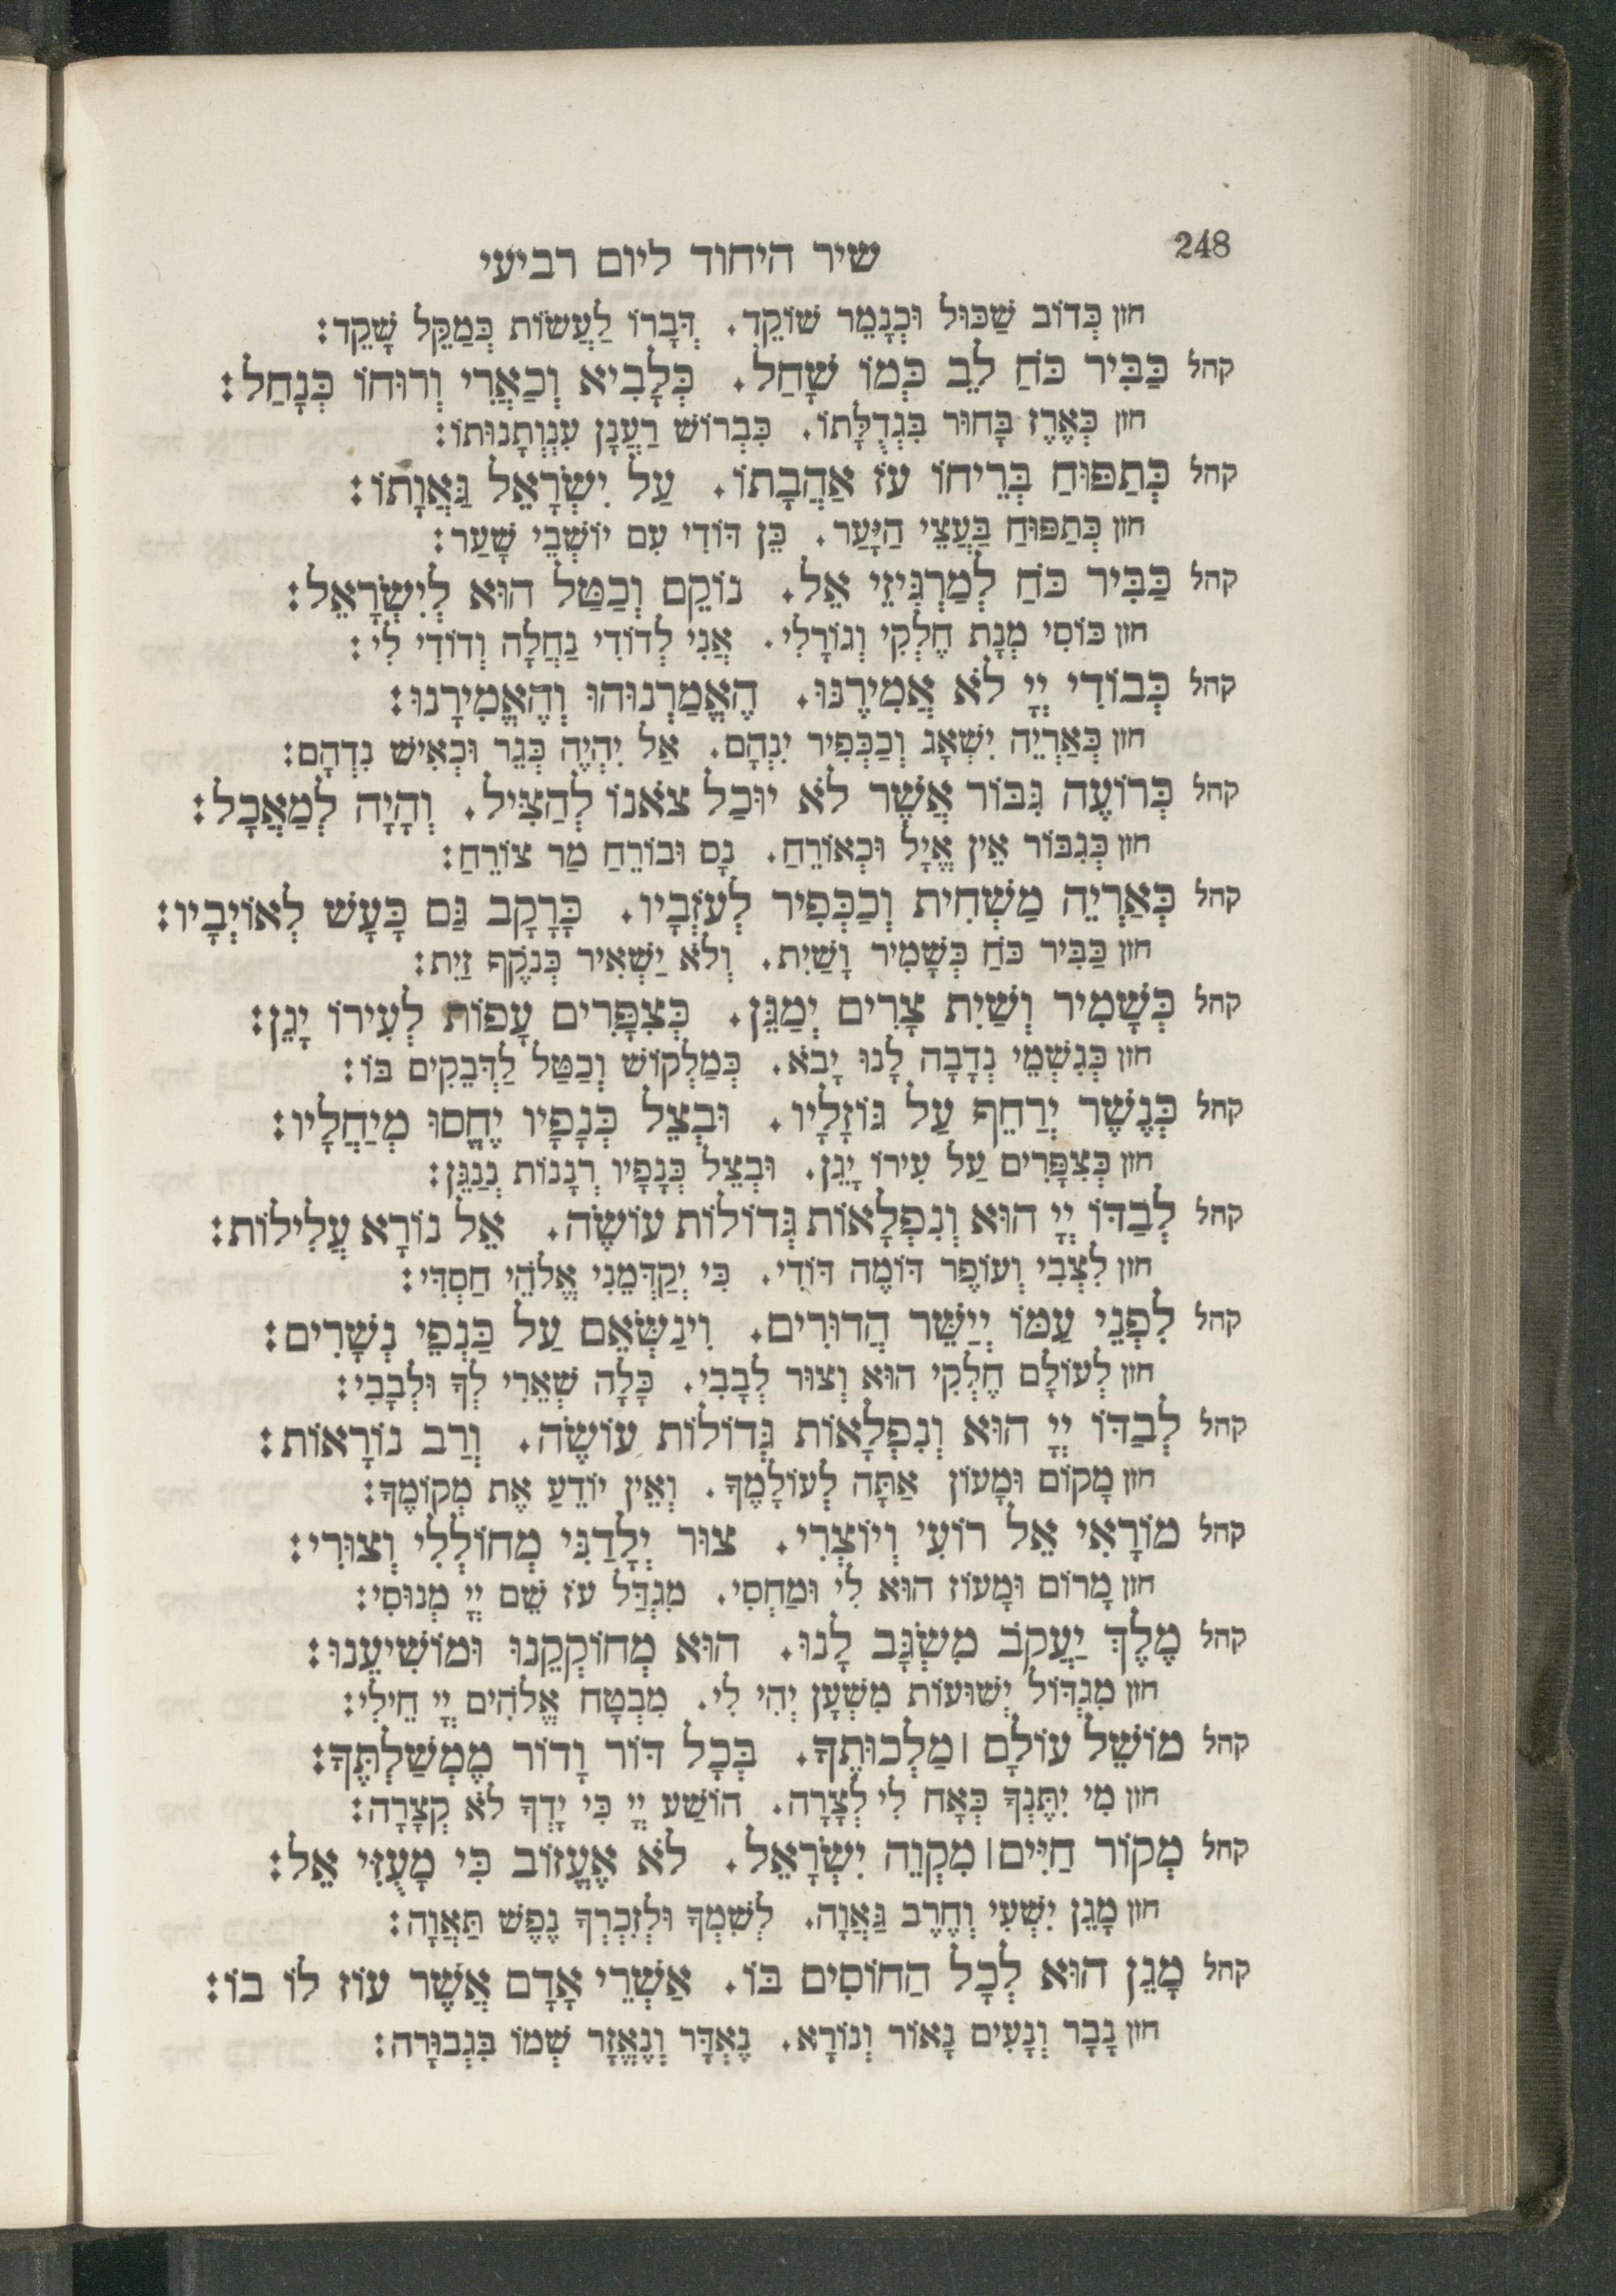 248
שיר היחוד ליום רביעי
חזן כְּדוֹב שַׁכּוּל וּכְנָמֵר שׁוֹקֵד. דְּבָרוֹ לַעֲשׂוֹת כְּמַקֵּל שָׁקֵד:
קהל כַּבִּיר כֹּחַ לֵב כְּמוֹ שָׁחַל. כְּלָבִיא וְכַאֲרִי וְרוּחוֹ כְּנָחַל:
חזן כְּאֶרֶז בָּחוּר בִּגְדֻלָּתוֹ. כִּבְרוֹשׁ רַעֲנָן עִנְוְתָנוּתוֹ:
קהל כְּתַפּוּחַ בְּרֵיחוֹ עֹז אַהֲבָתוֹ. עַל יִשְׂרָאֵל גַּאֲוָתוֹ:
חזן כְּתַפּוּחַ בַּעֲצֵי הַיָּעַר. כֵּן דּוֹדִי עִם יוֹשְׁבֵי שָׁעַר:
קהל כַּבִּיר כֹּחַ לְמַרְגִּיזֵי אֵל. נוֹקֵם וְכַטַּל הוּא לְיִשְׂרָאֵל:
חזן כּוֹסִי מְנָת חֶלְקִי וְגוֹרָלִי. אֲנִי לְדוֹדִי נַחֲלָה וְדוֹדִי לִי:
קהל כְּבוֹדִי יְיָ לֹא אֲמִירֶנּוּ. הֶאֱמַרְנוּהוּ וְהֶאֱמִירָנוּ:
חזן כְּאַרְיֵה יִשְׁאָג וְכַכְּפִיר יִנְהָם. אַל יִהְיֶה כְּגֵר וּכְאִישׁ נִדְהָם:
קהל כְּרוֹעֶה גִּבּוֹר אֲשֶׁר לֹא יוּכַל צֹאנוֹ לְהַצִּיל. וְהָיָה לְמַאֲכָל:
חזן כְּגִבּוֹר אֵין אֱיָל וּכְאוֹרֵחַ. נָס וּבוֹרֵחַ מַר צוֹרֵחַ:
קהל כְּאַרְיֵה מַשְׁחִית וְכַכְּפִיר לְעֹזְבָיו. כָּרָקָב גַּם כָּעָשׁ לְאוֹיְבָיו:
חזן כַּבִּיר כֹּחַ כְּשָׁמִיר וָשַׁיִת. וְלֹא יַשְׁאִיר כְּנֹקֶף זַיִת:
קהל כְּשָׁמִיר וְשַׁיִת צָרִים יְמַגֵּן. כְּצִפֳּרִים עָפוֹת לְעִירוֹ יָגֵן:
חזן כְּגִשְׁמֵי נְדָבָה לָנוּ יָבֹא. כְּמַלְקוֹשׁ וְכַטַּל לַדְּבֵקִים בּוֹ:
קהל כְּנֶשֶׁר יְרַחֵף עַל גּוֹזָלָיו. וּבְצֵל כְּנָפָיו יֶחֱסוּ מְיַחֲלָיו:
חזן כְּצִפֳּרִים עַל עִירוֹ יָגֵן. וּבְצֵל כְּנָפָיו רְנָנוֹת נְנַגֵּן:
קהל לְבַדּוֹ יְיָ הוּא וְנִפְלָאוֹת גְּדוֹלוֹת עוֹשֶׂה. אֵל נוֹרָא עֲלִילוֹת:
חזן לִצְבִי וְעוֹפֶר דּוֹמֶה דּוֹדִי. כִּי יְקַדְּמֵנִי אֱלֹהֵי חַסְדִּי:
קהל לִפְנֵי עַמּוֹ יְיַשֵּׁר הֲדוּרִים. וִינַשְּׂאֵם עַל כַּנְפֵי נְשָׁרִים:
חזן לְעוֹלָם חֶלְקִי הוּא וְצוּר לְבָבִי. כָּלָה שְׁאֵרִי לְךָ וּלְבָבִי:
קהל לְבַדּוֹ יְיָ הוּא וְנִפְלָאוֹת גְּדוֹלוֹת עוֹשֶׂה. וְרַב נוֹרָאוֹת:
חזן מָקוֹם וּמָעוֹן אַתָּה לְעוֹלָמֶךָ. וְאֵין יוֹדֵעַ אֶת מְקוֹמֶךָ:
קהל מוֹרָאִי אֵל רוֹעִי וְיוֹצְרִי. צוּר יְלָדַנִּי מְחוֹלְלִי וְצוּרִי:
חזן מָרוֹם וּמָעוֹז הוּא לִי וּמַחְסִי. מִגְדַּל עֹז שֵׁם יְיָ מְנוּסִי:
קהל מֶלֶךְ יַעֲקֹב מִשְׂגָּב לָנוּ. הוּא מְחוֹקְקֵנוּ וּמוֹשִׁיעֵנוּ:
חזן מִגְדּוֹל יְשׁוּעוֹת מִשְׁעָן יְהִי לִי. מִבְטָח אֱלֹהִים יְיָ חֵילִי:
קהל מוֹשֵׁל עוֹלָם ׀ מַלְכוּתֶךָ. בְּכָל דּוֹר וָדוֹר מֶמְשַׁלְתֶּךָ:
חזן מִי יִתֶּנְךָ כְּאָח לִי לְצָרָה. הוֹשַׁע יְיָ כִּי יָדְךָ לֹא קְצָרָה:
קהל מְקוֹר חַיִּים ׀ מִקְוֵה יִשְׂרָאֵל. לֹא אֶעֱזוֹב כִּי מָעֻזִּי אֵל:
חזן מָגֵן יִשְׁעִי וְחֶרֶב גַּאֲוָה. לְשִׁמְךָ וּלְזִכְרְךָ נֶפֶשׁ תַּאֲוָה:
קהל מָגֵן הוּא לְכָל הַחוֹסִים בּוֹ. אַשְׁרֵי אָדָם אֲשֶׁר עוֹז לוֹ בוֹ:
חזן נָבָר וְנָעִים נָאוֹר וְנוֹרָא. נֶאְדָּר וְנֶאֱזָר שְׁמוֹ בִּגְבוּרָה: